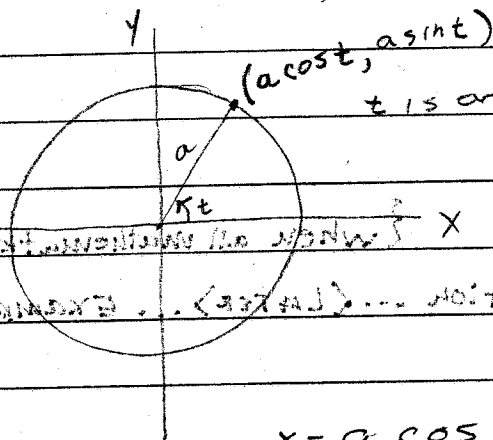 Y
(a cost, a sint)
t is an
a
t
X
x = a cos